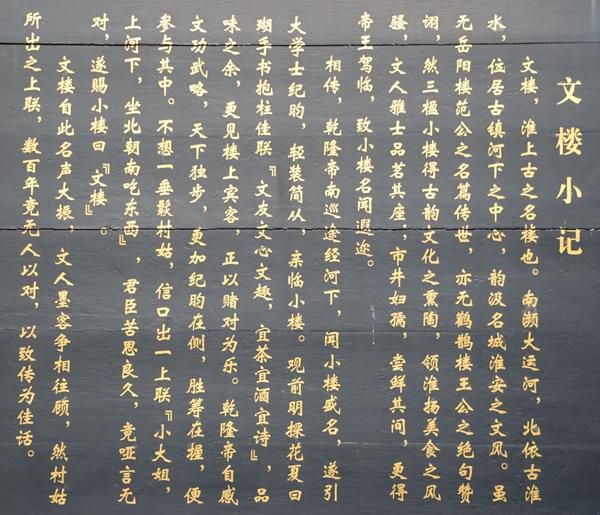 文楼小记
文楼，淮上古之名楼也。南濒大运河，北依古淮
水，位居古镇河下之中心，韵汲名城淮安之文风。虽
无岳阳楼范公之名篇传世，亦无鹳鹊楼王公之绝句赞
诩，然三楹小楼得古韵文化之熏陶，领淮扬美食之风
骚，文人雅士品茗其座；市井妇孺，尝鲜其间，更得
帝王驾临，致小楼名闻遐迩。
相传，乾隆帝南巡途经河下，闻小楼盛名，遂引
大学士纪昀，轻装简从，亲临小楼。观前明探花夏曰
瑚手书抱柱佳联『文友文心文趣，宜茶宜酒宜诗』，品
味之余，更见楼上宾客，正以赌对为乐。乾隆帝自感
文功武略，天下独步，更加纪昀在侧，胜筹在握，便
参与其中。不想一垂髫村姑，信口出一上联『小大姐，
上河下，坐北朝南吃东西』，君臣苦思良久，竟哑言无
对，遂赐小楼曰『文楼』。
文楼自此名声大振，文人墨客争相往顾，然村姑
所出之上联，数百年竟无人以对，以致传为佳话。